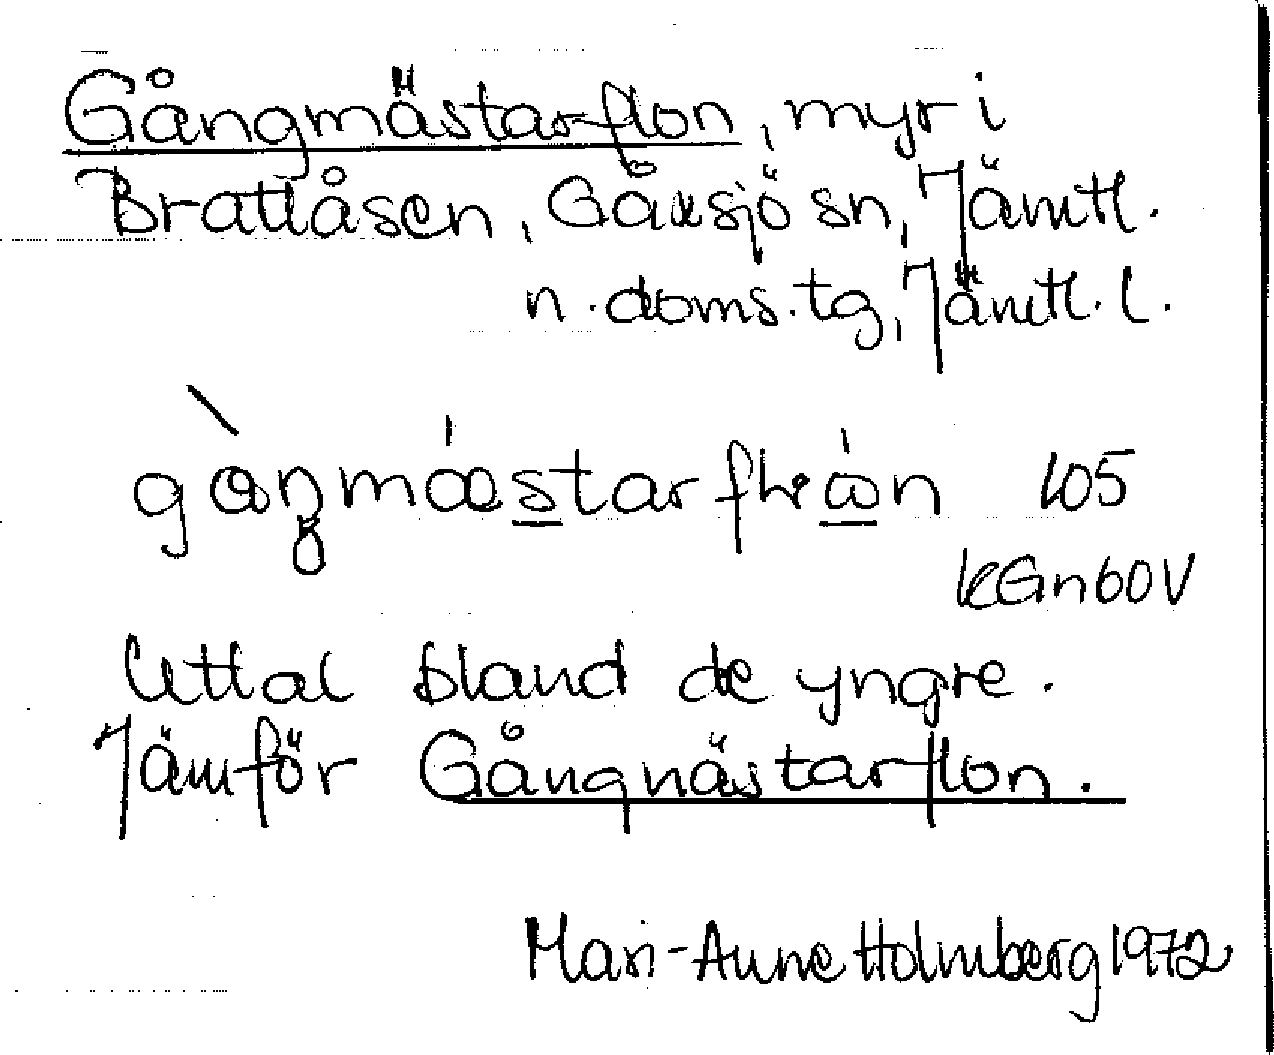 Gångmästarflon, myr i
Brattåsen, Gåxsjö sn, Jämtl.
n. doms. tg, Jämtl. l.
105
kGn60V
Uttal bland de yngre.
Jämför Gångnästarflon.
Mari-Anne Holmberg 1972